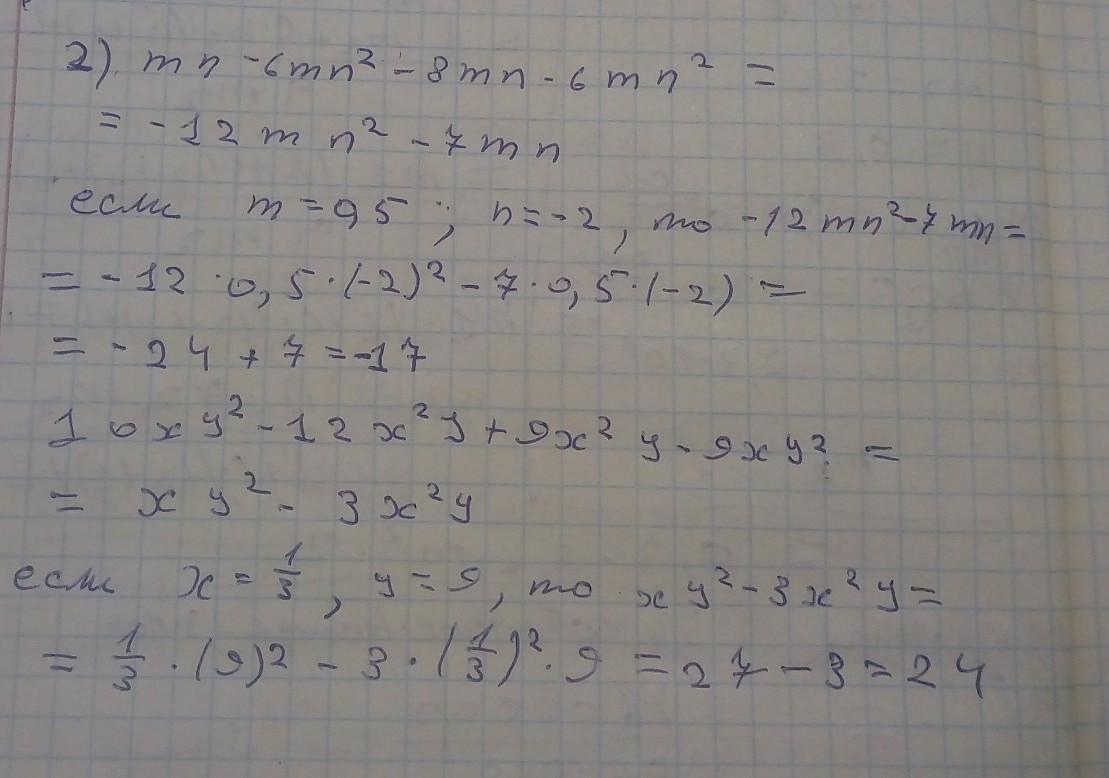 2) mn - 6mn² - 8mn - 6mn² =
= -12mn² - 7mn
если m = 0,5; n = -2, то -12mn² - 7mn =
= -12 · 0,5 · (-2)² - 7 · 0,5 · (-2) =
= -24 + 7 = -17
10xy² - 12x²y + 9x²y - 9xy² =
= xy² - 3x²y
если x = 1/3, y = 9, то xy² - 3x²y =
= 1/3 · (9)² - 3 · (1/3)² · 9 = 27 - 3 = 24